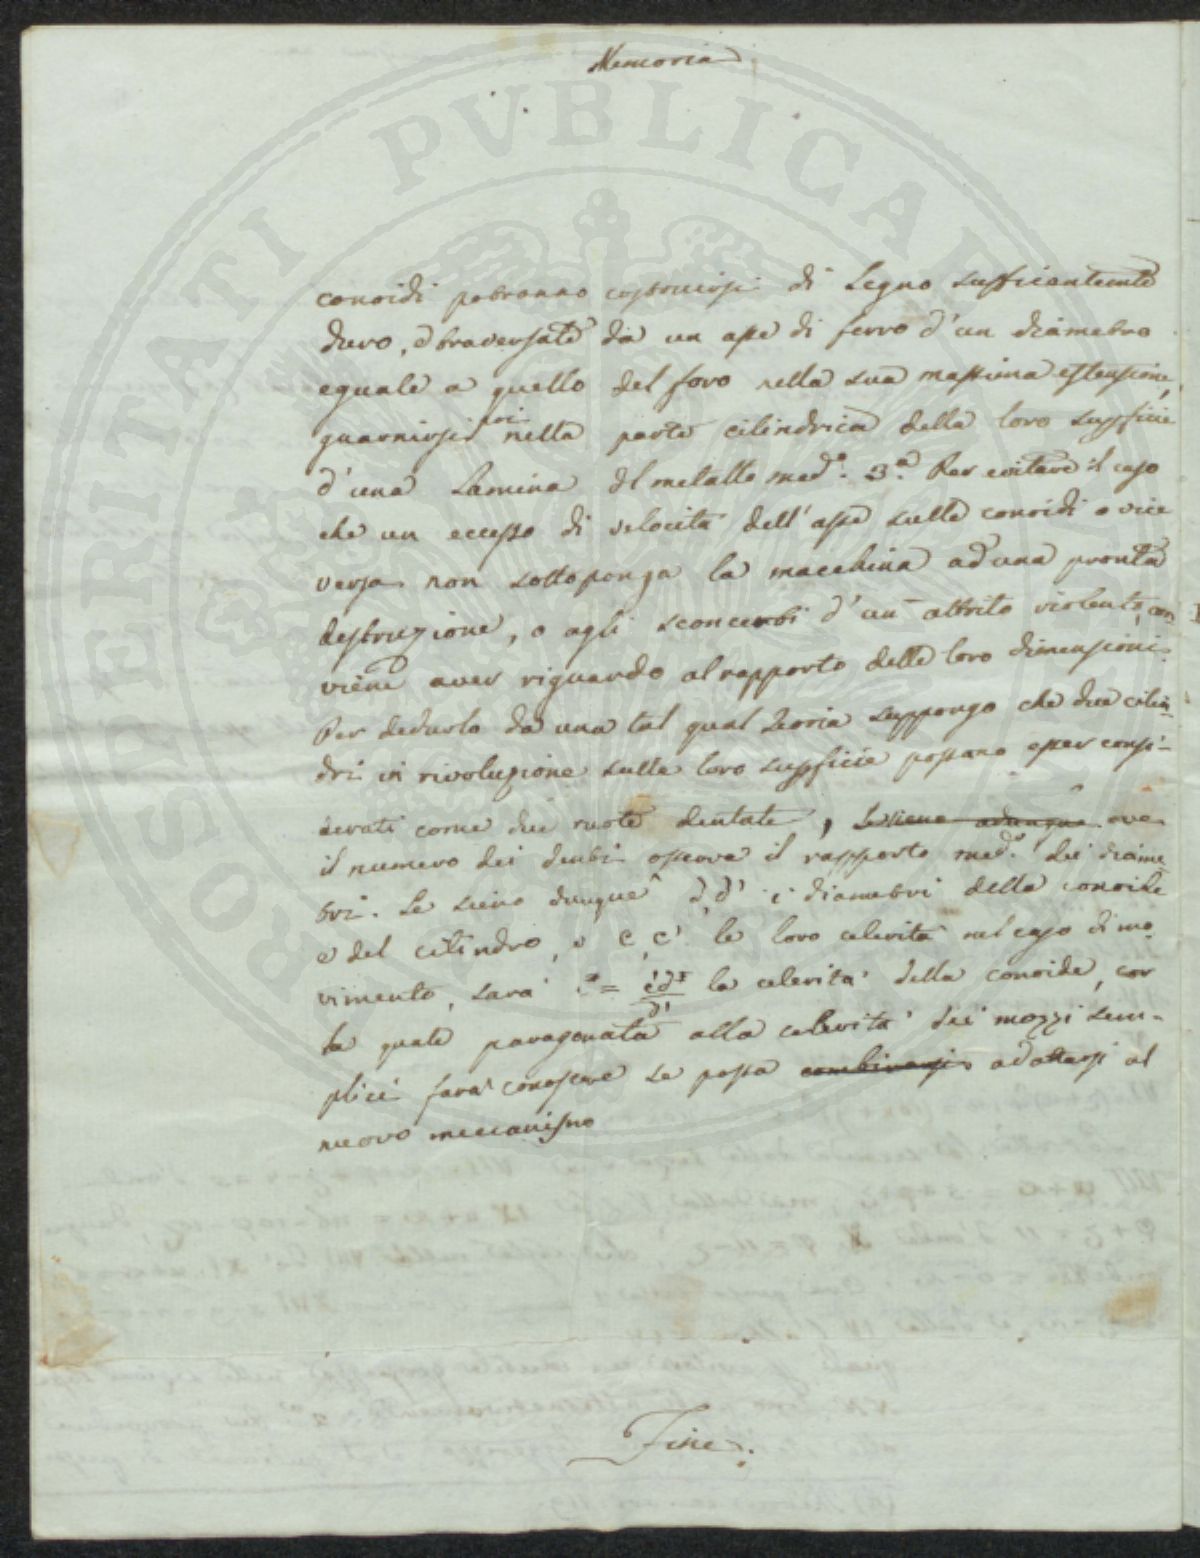 Memoria
conoidi potranno costruirsi di Legno sufficientemte
duro, e traversate da un asse di ferro d'un diametro
eguale a quello del foro nella sua massima estensione,
guarnirsi poi nella parte cilindrica della loro supficie
d'una Lamina del metallo medo. 3.a Per evitare il caso
che un eccesso di velocità dell'asse sulle conoidi o vice
versa non sottoponga la macchina ad una pronta
destruzione, o agli sconcerti d'un attrito violento, con
viene aver riguardo al rapporto delle loro dimensioni.
Per dedurlo da una tal qual Teoria suppongo che due cilin
dri in rivoluzione sulle loro supficie possano esser consi-
derati come due ruote dentate, ove
il numero dei denti osserva il rapporto medo. dei diame
tri. Se sieno dunque d, d' i diametri della conoide
e del cilindro, e c, c' le loro celerità nel caso di mo
vimento, sarà c = c'd'/d la celerità della conoide, con
la quale paragonata alla celerità dei mozzi sem-
plici farà conoscere se possa combinarsi adattarsi al
nuovo meccanismo
Fine.
PROSPERITATI PVBLICAE